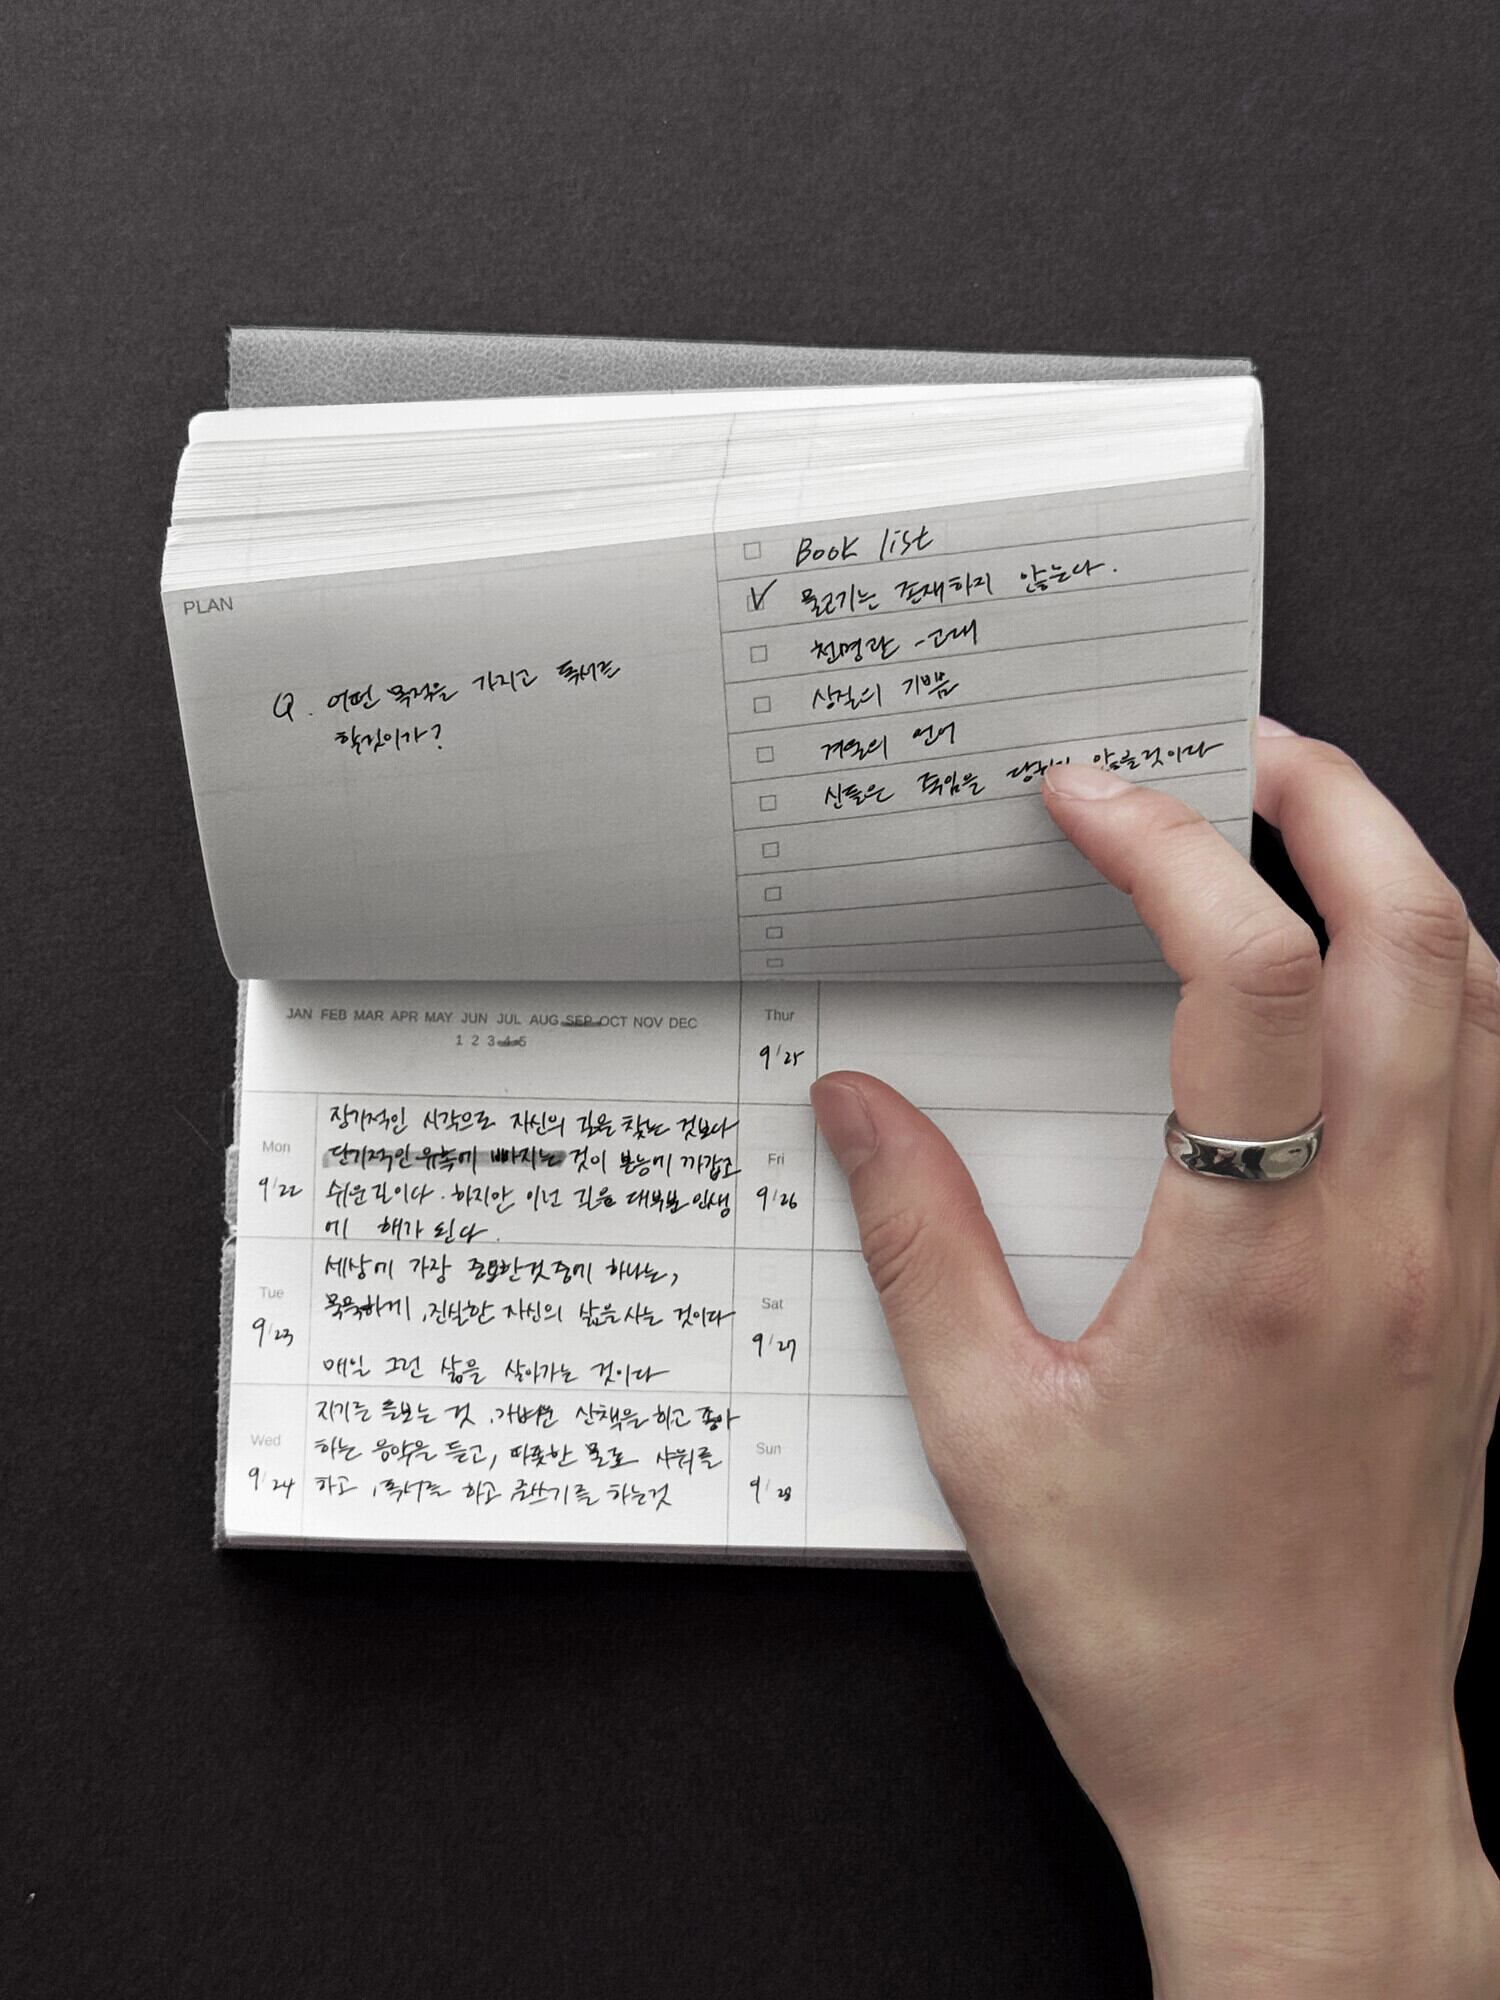 PLAN
Q. 어떤 목적을 가지고 독서를
할것이가?
Book list
물고기는 존재하지 않는다.
천명관 - 고래
상실의 기쁨
겨울의 언어
신들은 죽임을 않을것이다
JAN FEB MAR APR MAY JUN JUL AUG SEP OCT NOV DEC
1 2 3 4 5
Mon
9/22
장기적인 시각으로 자신의 길을 찾는 것보다
단기적인 유혹에 빠지는 것이 본능에 가깝고
쉬운 길이다. 하지만 이런 길은 대부분 인생
에 해가 된다.
Tue
9/23
세상에 가장 중요한것 중에 하나는,
묵묵하게, 진실한 자신의 삶을 사는 것이다
매일 그런 삶을 살아가는 것이다
Wed
9/24
자기를 돌보는 것, 가벼운 산책을 하고 좋아
하는 음악을 듣고, 따뜻한 물로 샤워를
하고, 독서를 하고 글쓰기를 하는것
Thur
9/25
Fri
9/26
Sat
9/27
Sun
9/28